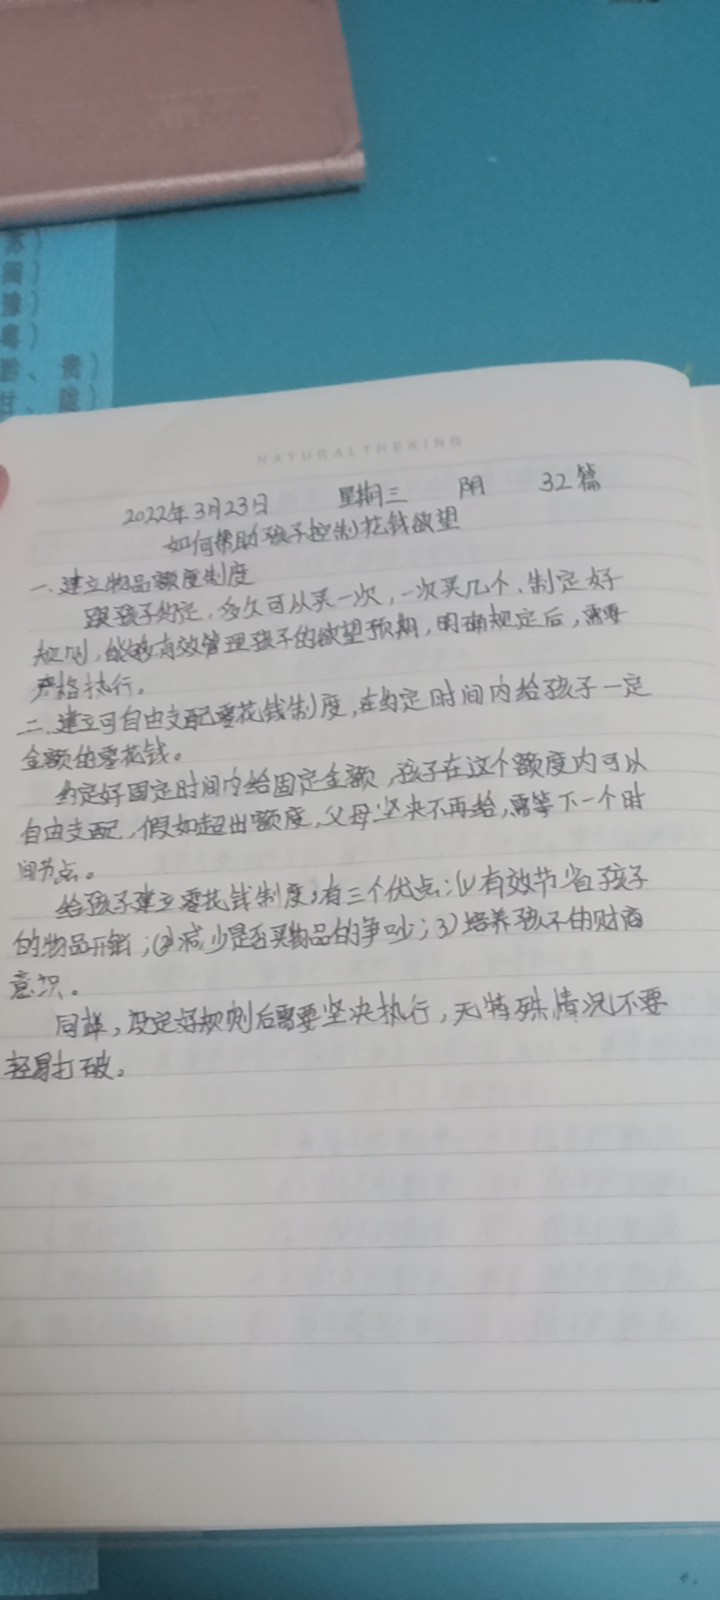 苏）
闽）
豫）
粤）
黔、贵）
甘、陇）
NATURALTHEKING
2022年3月23日 星期三 阴 32篇
如何帮助孩子控制花钱欲望
一、建立物品额度制度
跟孩子约定，多久可以买一次，一次买几个、制定好
规则，能够有效管理孩子的欲望预期，明确规定后，需要
严格执行。
二、建立可自由支配零花钱制度，在约定时间内给孩子一定
金额的零花钱。
约定好固定时间内给固定金额，孩子在这个额度内可以
自由支配，假如超出额度，父母坚决不再给，需等下一个时
间节点。
给孩子建立零花钱制度，有三个优点：(1)有效节省孩子
的物品开销；(2)减少是否买物品的争吵；3)培养孩子的财商
意识。
同样，设定好规则后需要坚决执行，无特殊情况不要
轻易打破。